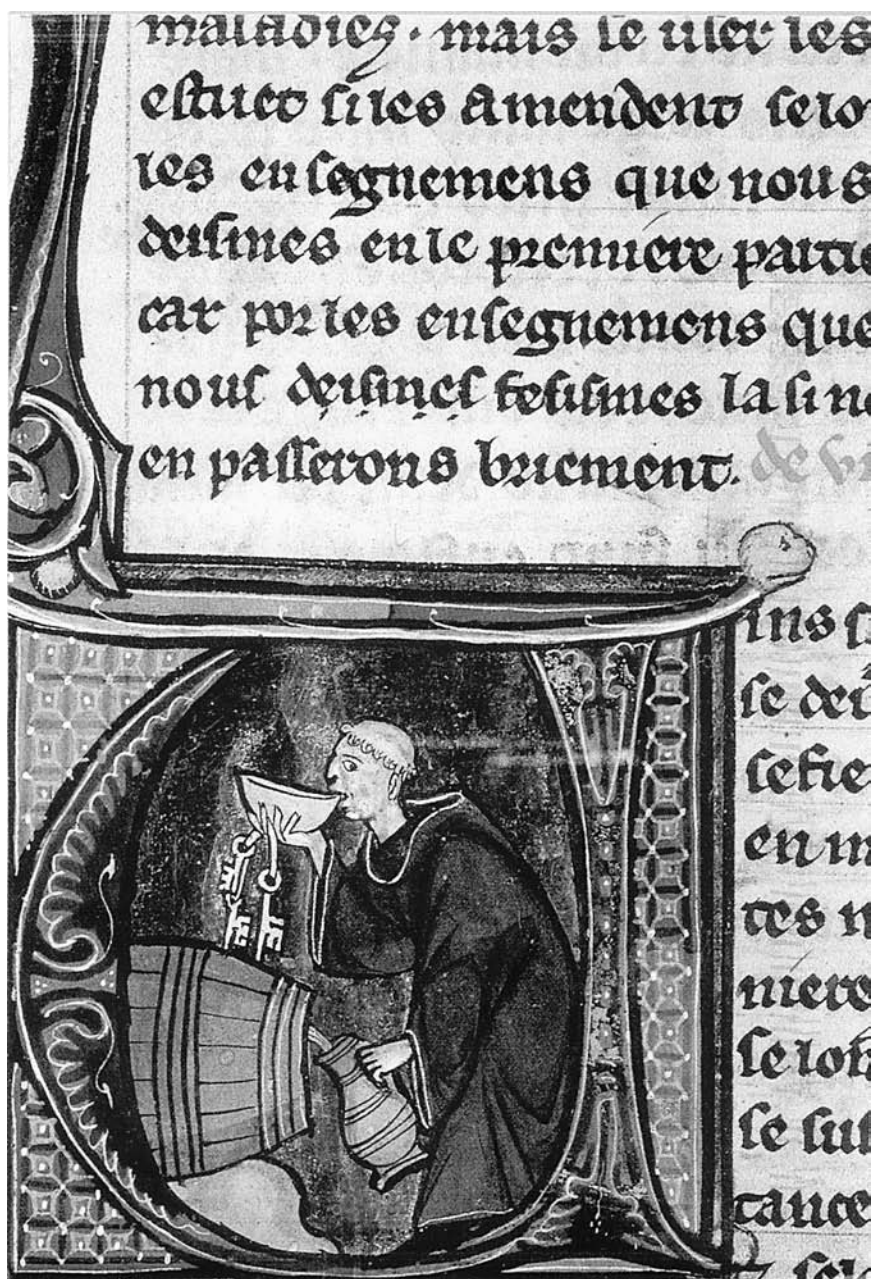 maladies. mais se user les
estuet si les amendent selo
les ensegnemens que nous
deismes en le premiere partie
car por les ensegnemens que
nous deismes fesismes la si ne
en passerons briement. de vi
ins s
se dei
en m
tes m
niere
se lor
se sus
tance
sel